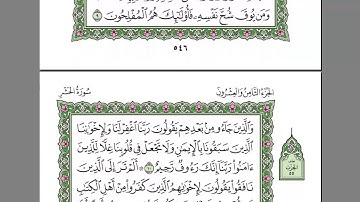 وَمَن يُوقَ شُحَّ نَفْسِهِۦ فَأُوْلَٰٓئِكَ هُمُ ٱلْمُفْلِحُونَ ٩
٥٤٦
الجُزْءُ الثَّامِنُ وَالعِشْرُونَ سُورَةُ الحَشْرِ
وَٱلَّذِينَ جَآءُو مِنۢ بَعْدِهِمْ يَقُولُونَ رَبَّنَا ٱغْفِرْ لَنَا وَلِإِخْوَٰنِنَا
ٱلَّذِينَ سَبَقُونَا بِٱلْإِيمَٰنِ وَلَا تَجْعَلْ فِى قُلُوبِنَا غِلًّا لِّلَّذِينَ
ءَامَنُواْ رَبَّنَآ إِنَّكَ رَءُوفٌ رَّحِيمٌ ١٠ أَلَمْ تَرَ إِلَى ٱلَّذِينَ
نَافَقُواْ يَقُولُونَ لِإِخْوَٰنِهِمُ ٱلَّذِينَ كَفَرُواْ مِنْ أَهْلِ ٱلْكِتَٰبِ